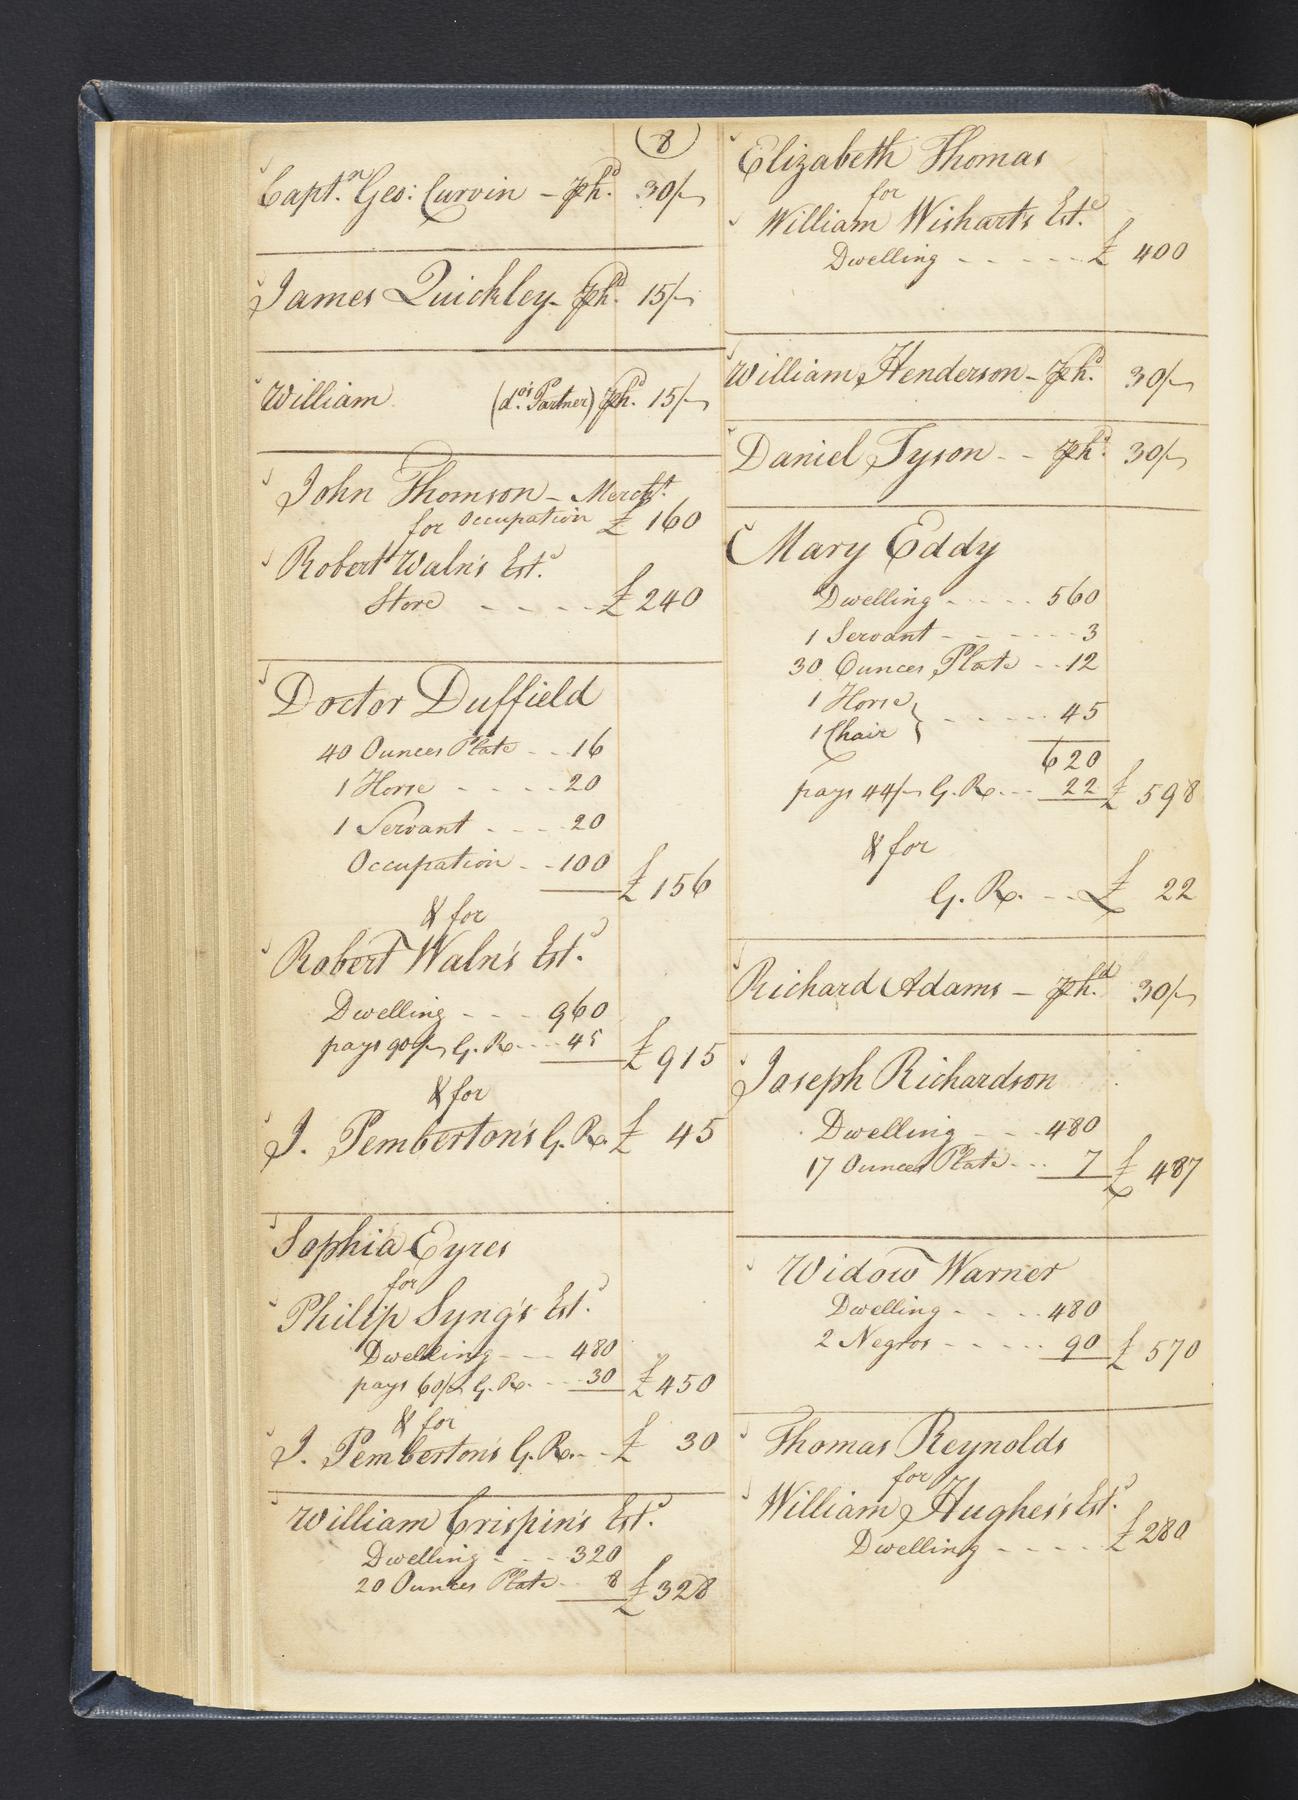 (8)
Capt.n Geo: Curvin - Ph.d 30/-
James Quickley - Ph.d 15/-
William (do.'s Partner) Ph.d 15/-
John Thomson - Mercht.
for Occupation £ 160
Robert Waln's Est.e
Store - - - - £ 240
Doctor Duffield
40 Ounces Plate - - 16
1 Horse - - - - 20
1 Servant - - - - 20
Occupation - - 100 £ 156
& for
Robert Waln's Est.e
Dwelling - - - 960
pays 90/- G. R. - - - 45 £ 915
& for
J. Pemberton's G. R. £ 45
Sophia Eyres
for
Philip Syng's Est.e
Dwelling - - - 480
pays 60/- G. R. - - - 30 £ 450
& for
J. Pemberton's G. R. - - £ 30
William Crispin's Est.e
Dwelling - - - 320
20 Ounces Plate - - 8 £ 328
Elizabeth Thomas
for
William Wishart's Est.e
Dwelling - - - - - £ 400
William Henderson - Ph.d 30/-
Daniel Tyson - - Ph.d 30/-
Mary Eddy
Dwelling - - - - 560
1 Servant - - - - - 3
30 Ounces Plate - - 12
1 Horse
1 Chair } - - - - - 45
620
pays 44/- G. R. - - - 22 £ 598
& for
G. R. - - £ 22
Richard Adams - Ph.d 30/-
Joseph Richardson
Dwelling - - - 480
17 Ounces Plate - - - 7 £ 487
Widow Warner
Dwelling - - - - 480
2 Negros - - - - - 90 £ 570
Thomas Reynolds
for
William Hughes's Est.e
Dwelling - - - - £ 280